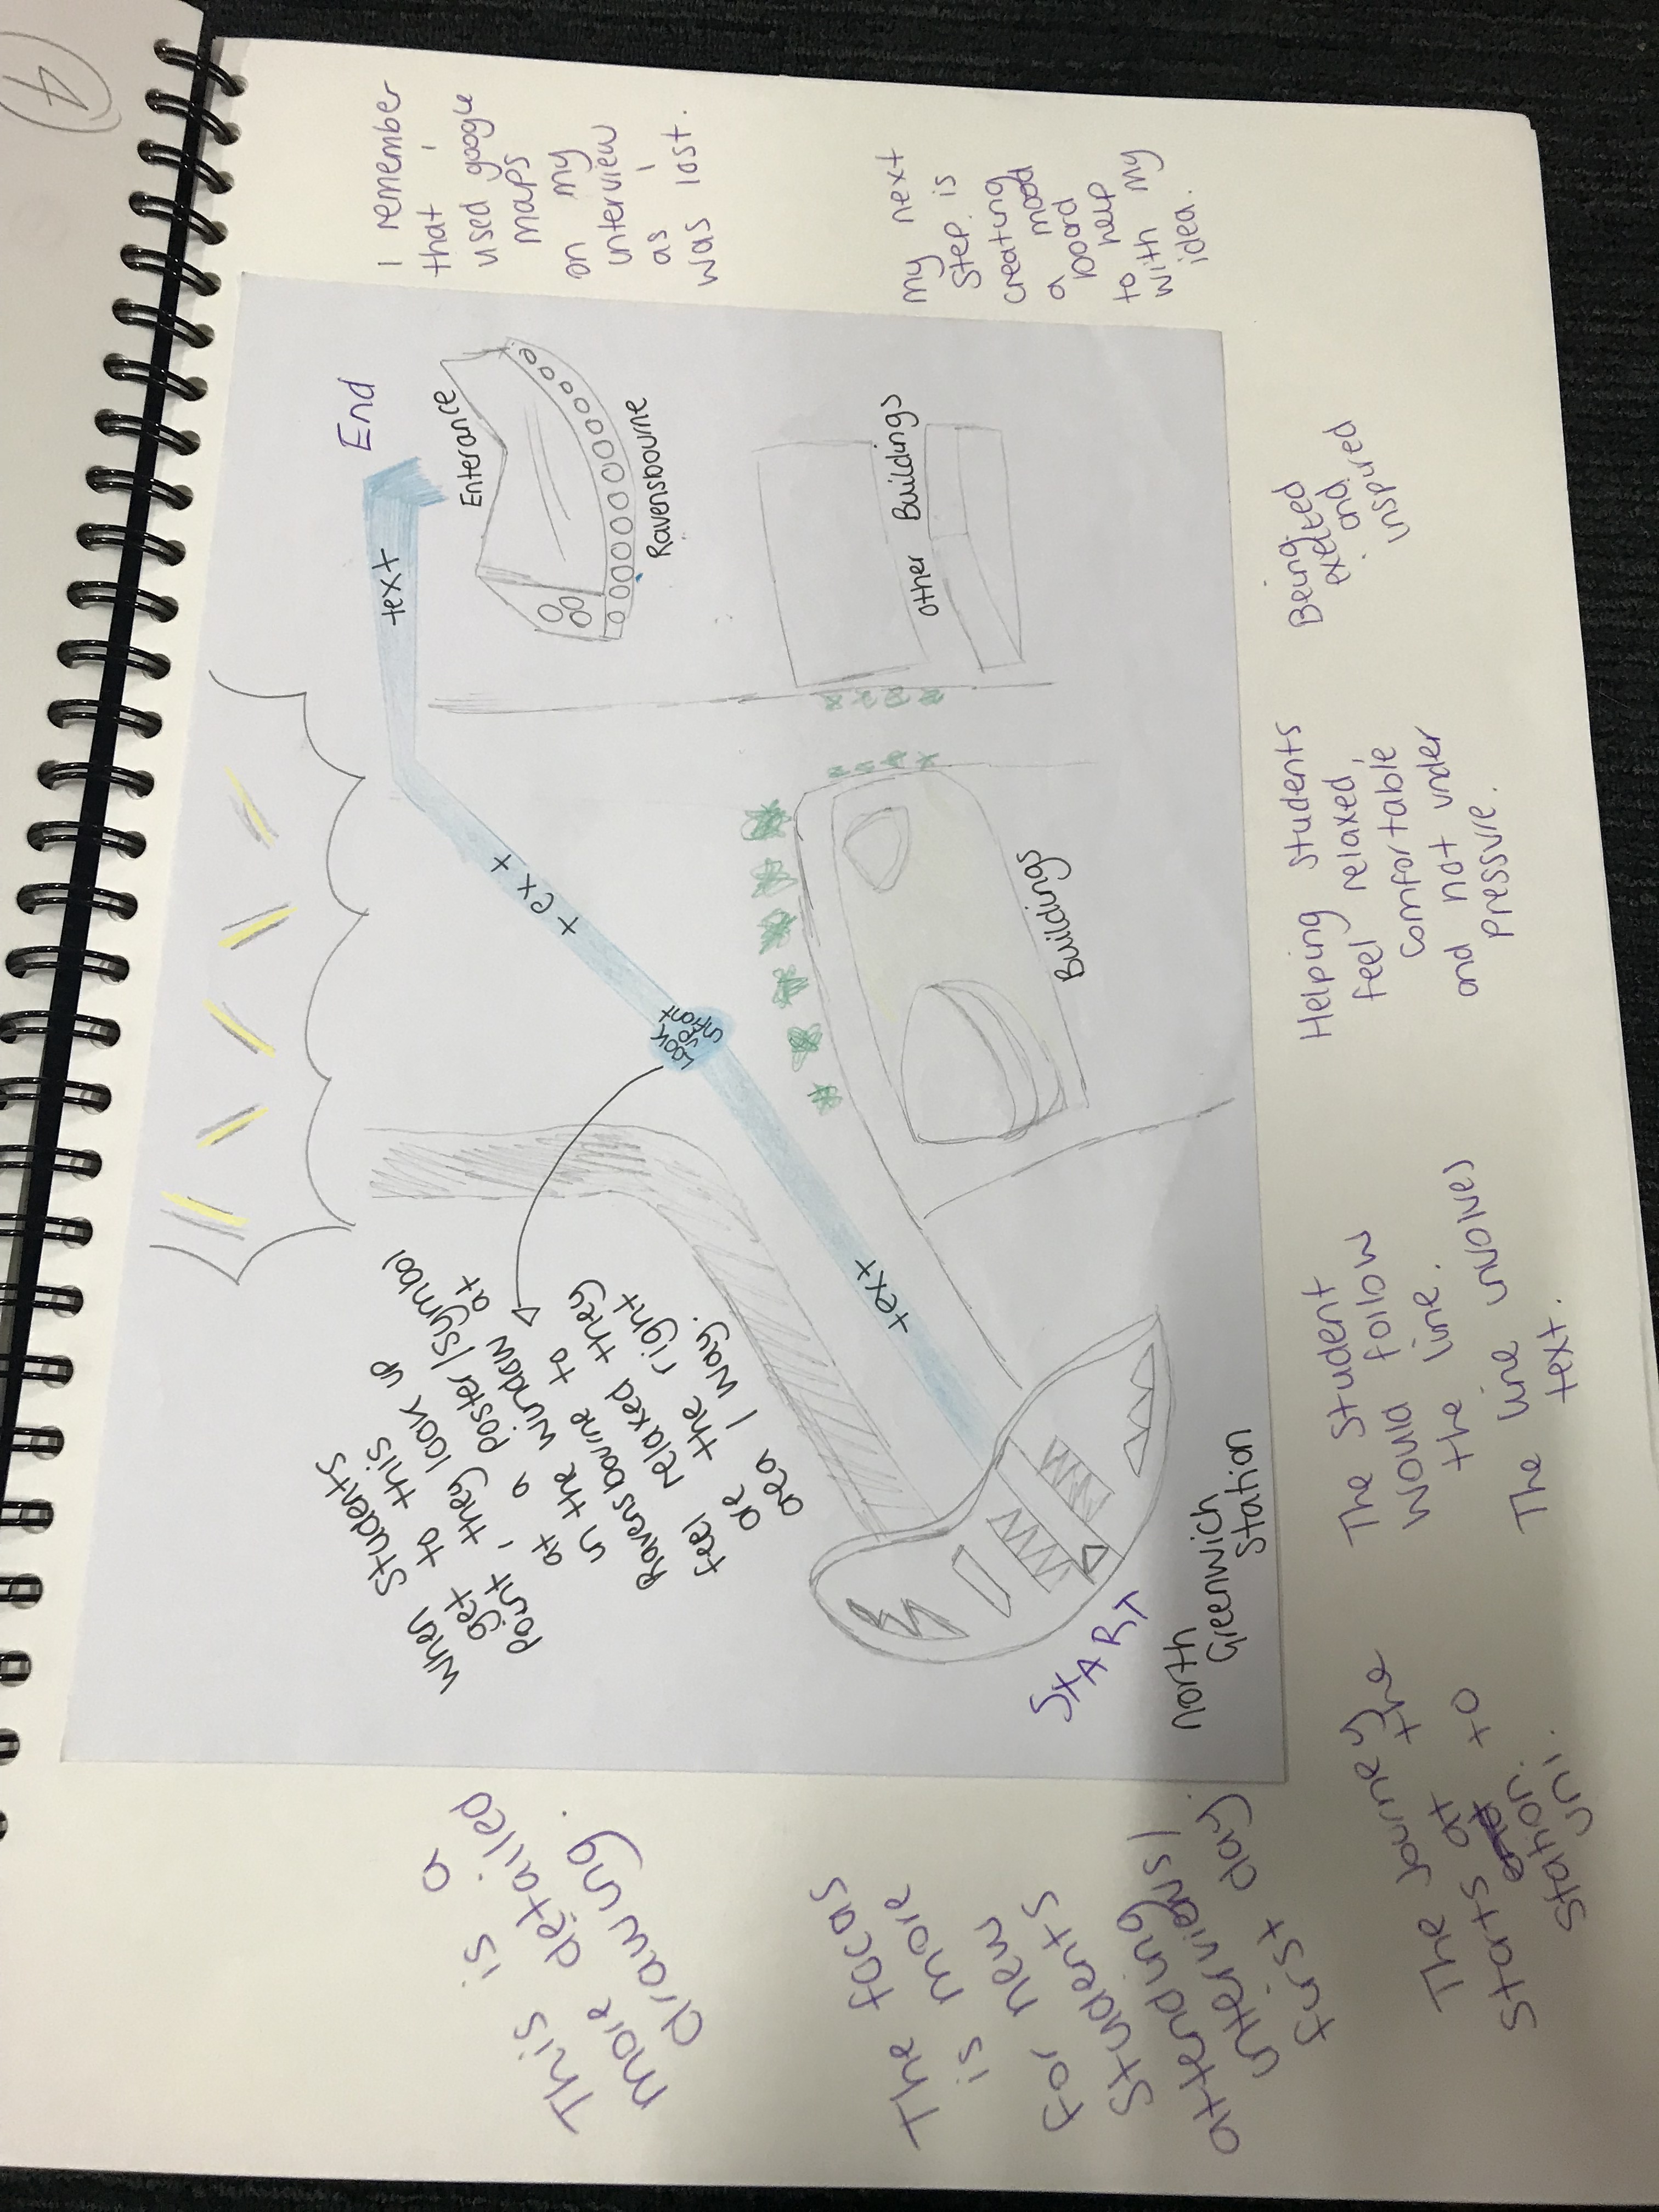 4
This is a
more detailed
drawing.
The focas
is more
for new
students
attending
interviews/
first day.
The journey
starts at the
station. to
uni.
When students
get to this
point, they look up
at a poster/symbol
in the window at
Ravensbourne to
feel relaxed they
are the right
area / way.
START
north
Greenwich
Station
text
look
infront
text
text
End
Enterance
Ravensbourne
Buildings
other Buildings
I remember
that i
used google
maps
on my
interview
as i
was lost.
my next
step is
creating
a mood
board
to help
with my
idea.
The student
would follow
the line.
The line involves
text.
Helping students
feel relaxed,
comfortable
and not under
pressure.
Being
exicted
and
inspired